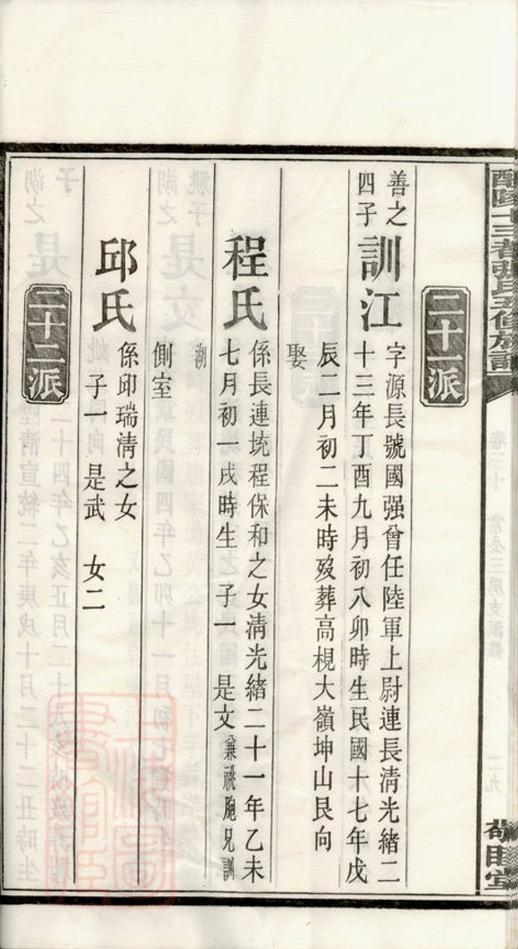 卷二十
二九
二十一派
善之
四子
訓江
字源長號國强曾任陸軍上尉連長清光緒二
十三年丁酉九月初八卯時生民國十七年戊
辰二月初二未時歿葬高梘大嶺坤山艮向
娶
程氏
係長連坑程保和之女清光緒二十一年乙未
七月初一戌時生 子一 是文 兼祧胞兄訓
湖
側室
邱氏
係邱瑞清之女
子一 是武 女二
二十二派